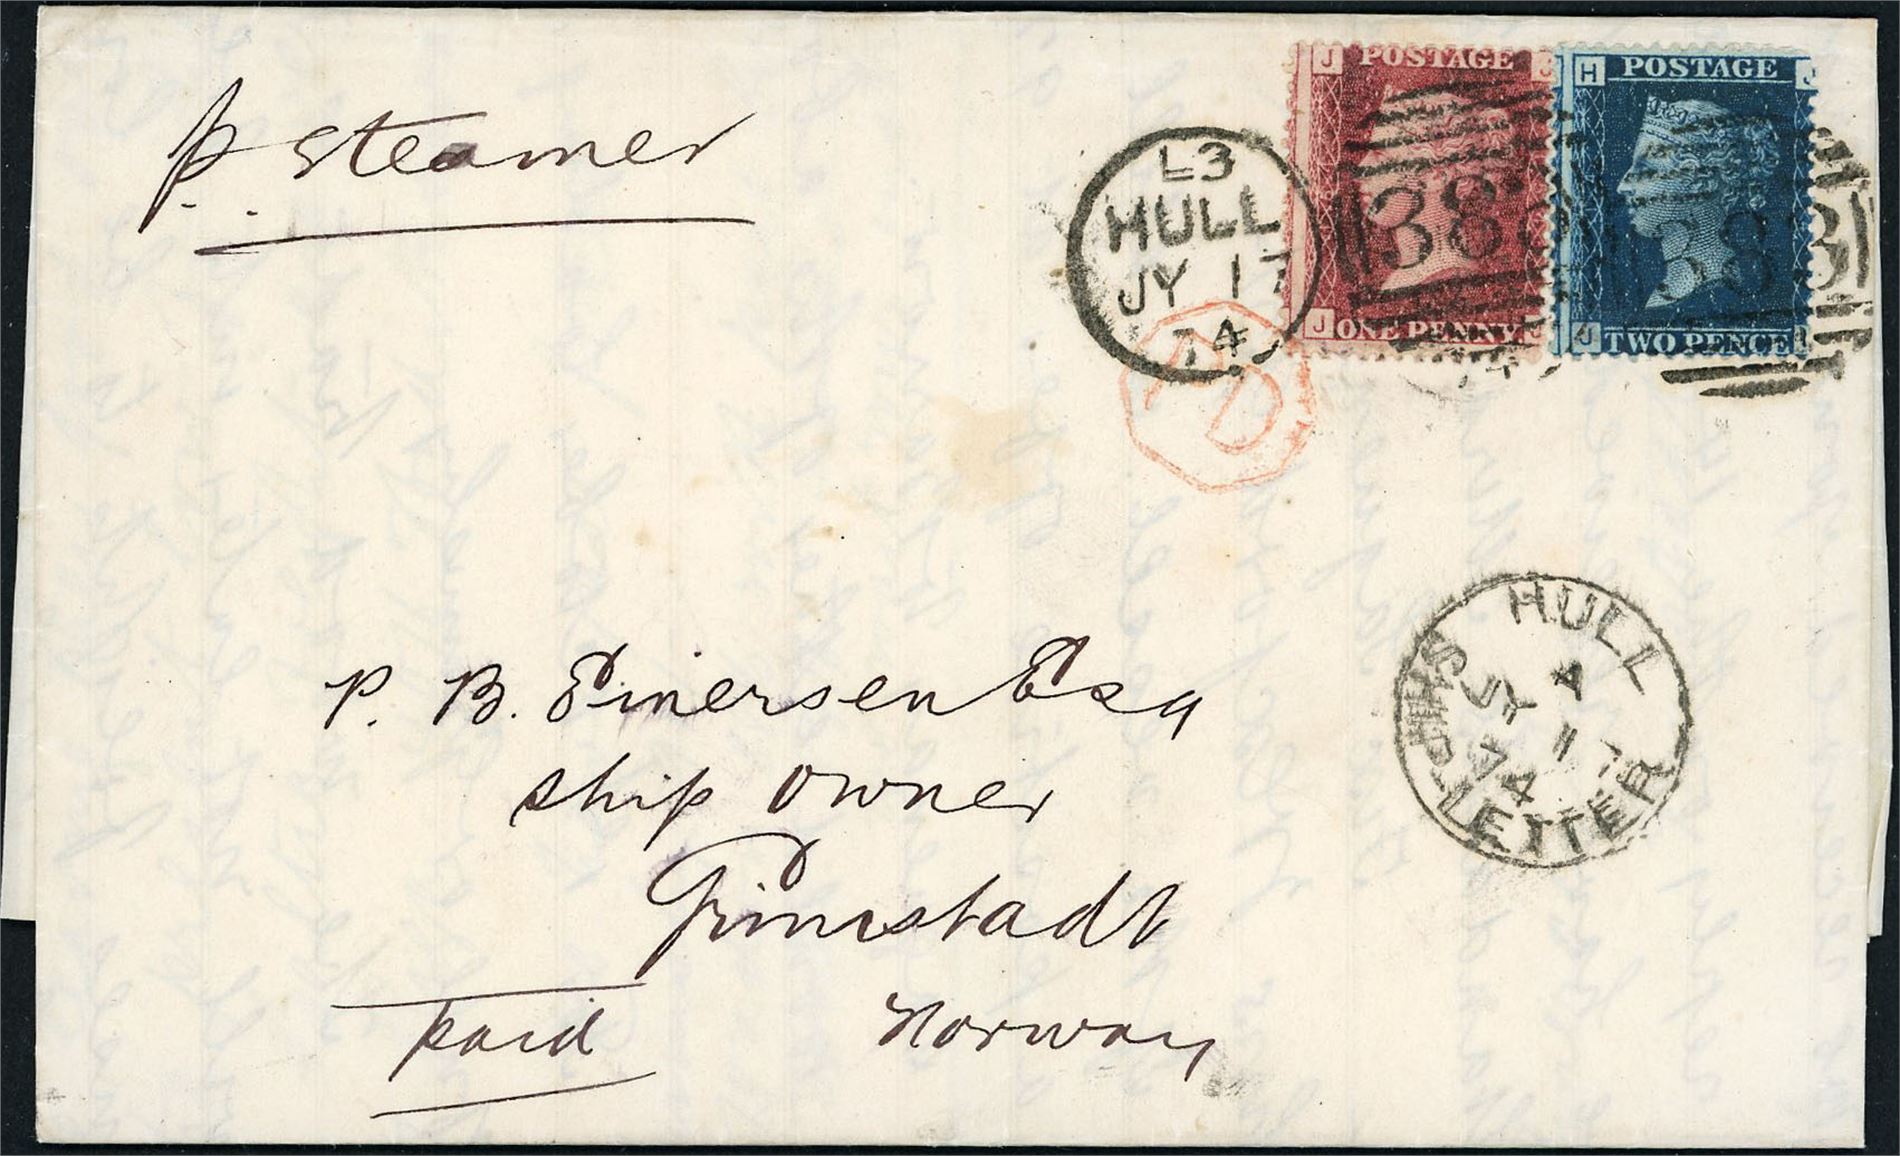 p. steamer
J POSTAGE J
J ONE PENNY J
H POSTAGE J
J TWO PENCE H
L3
HULL
JY 17
74
383
383
PD
HULL
SHIP LETTER
A
JY 17
74
P. B. Einersen Esq
ship owner
Grimstadt
Norway
paid